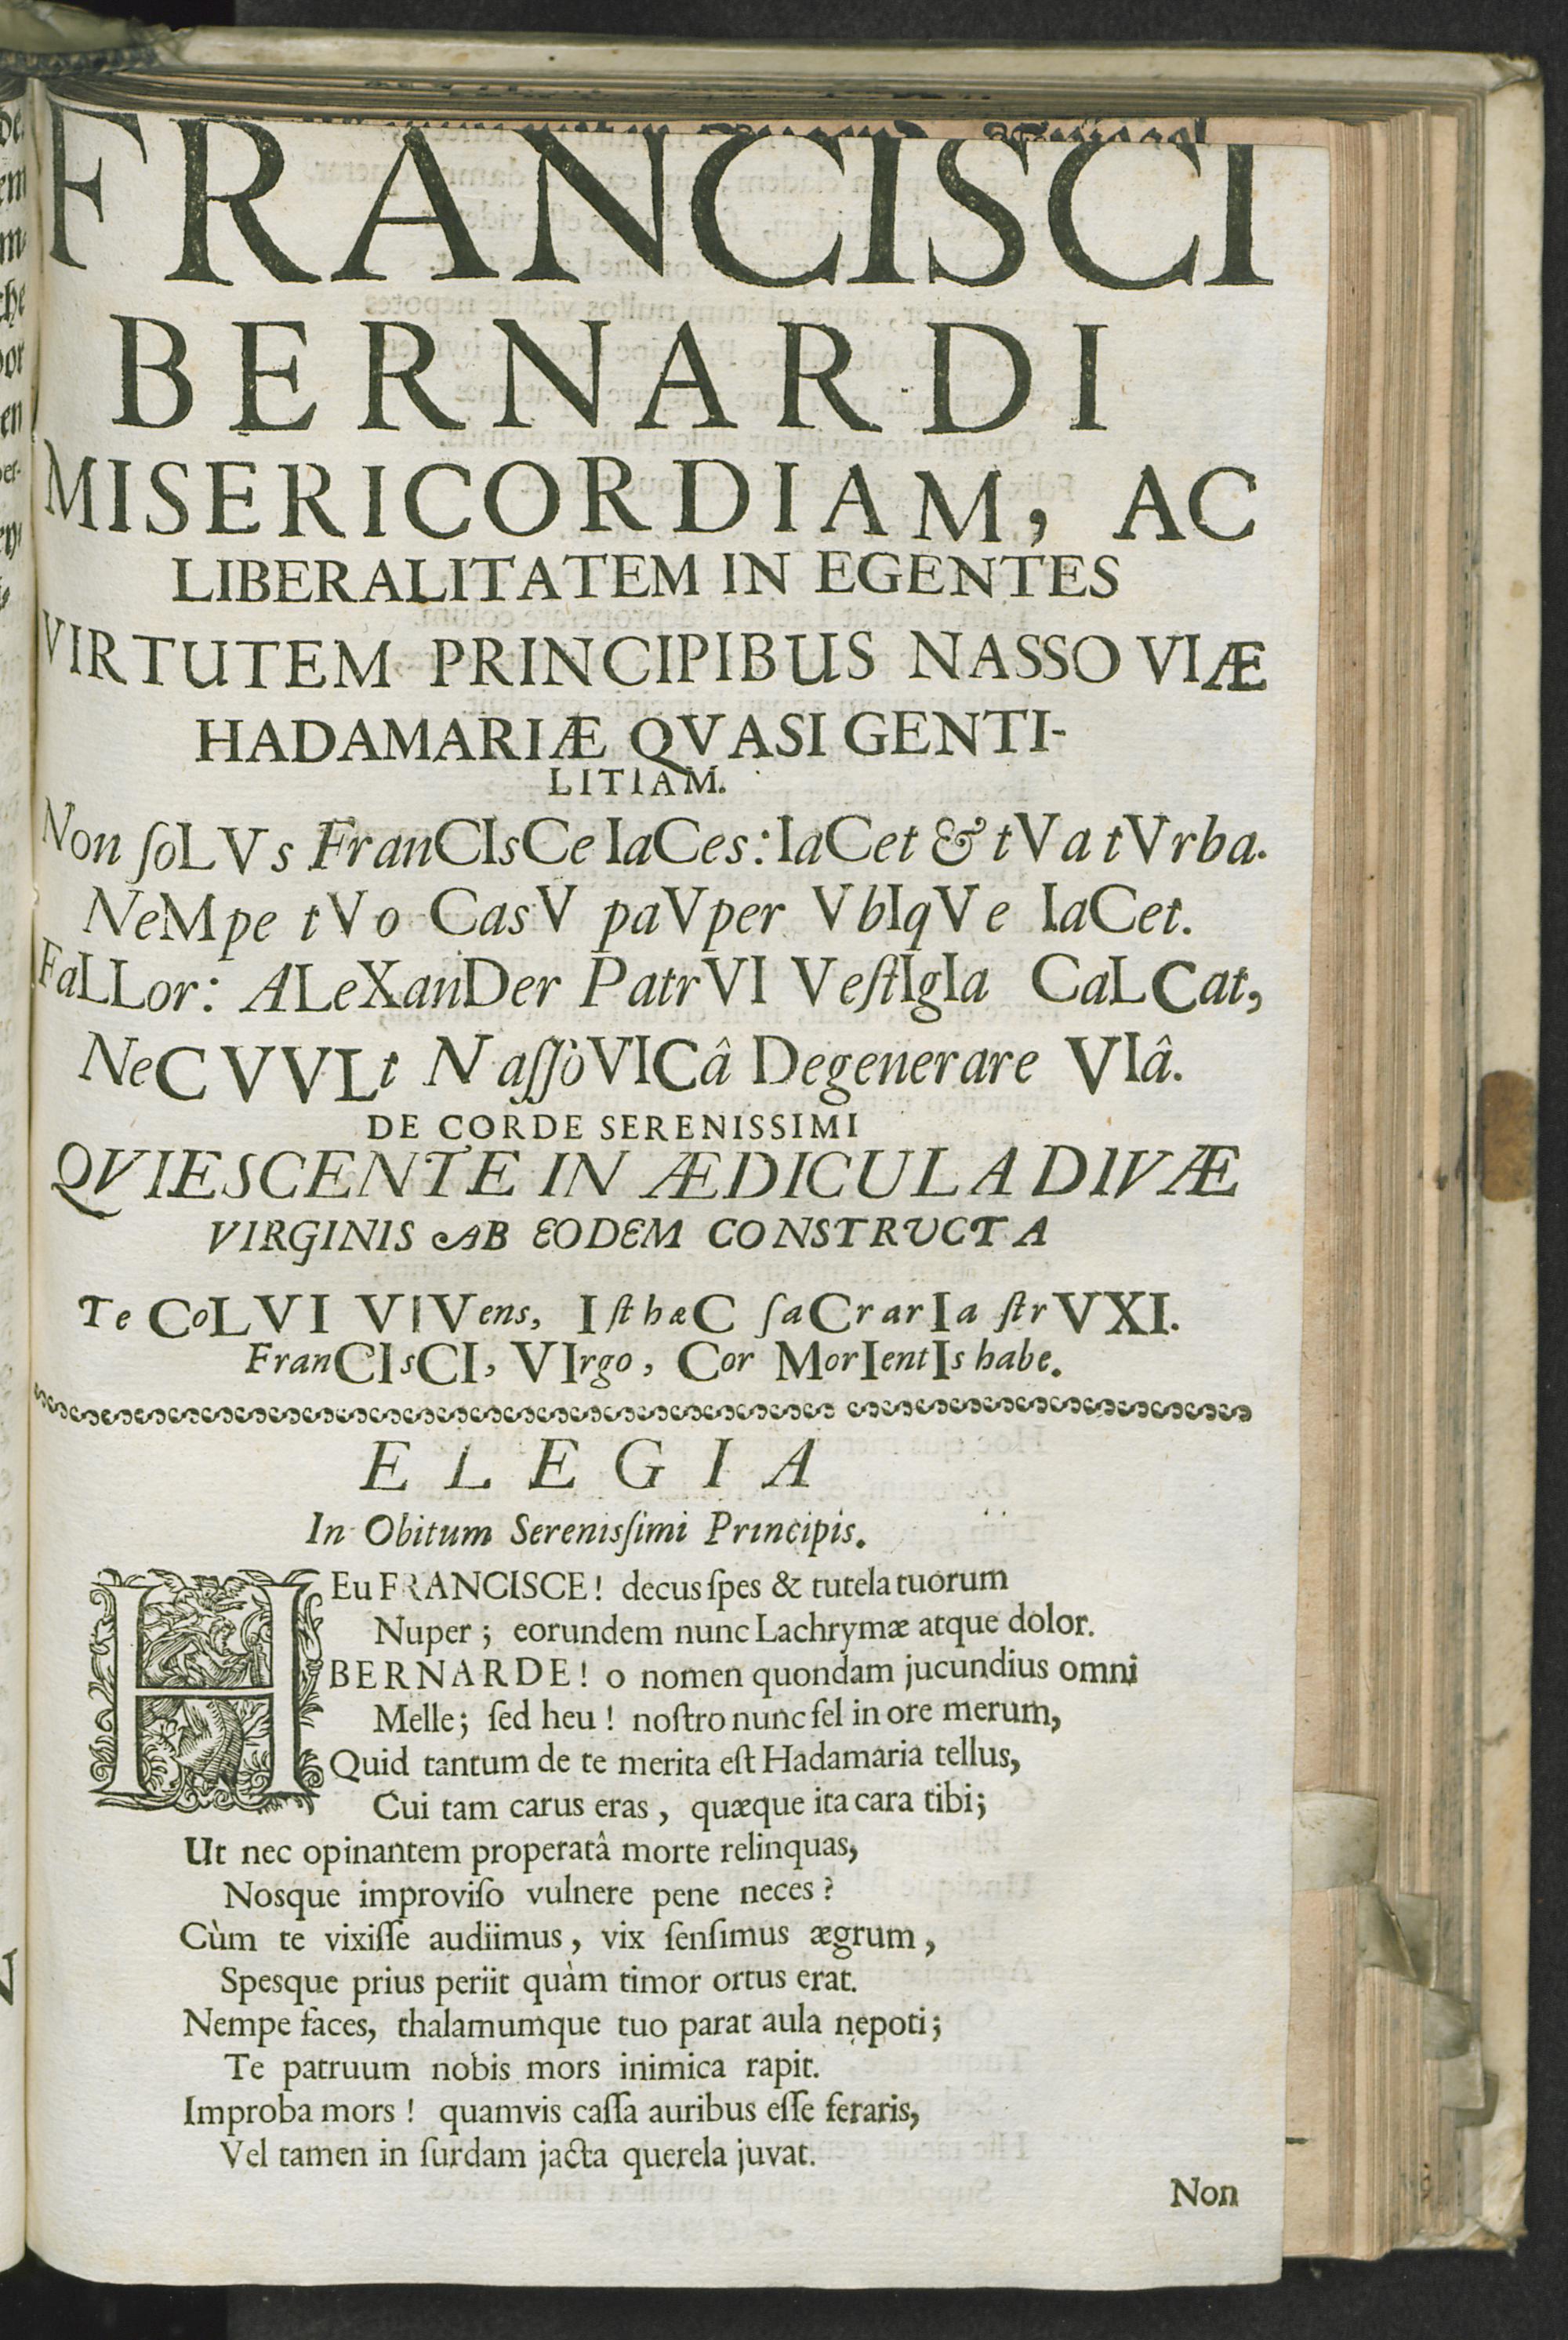 FRANCISCI
BERNARDI
MISERICORDIAM, AC
LIBERALITATEM IN EGENTES
VIRTUTEM PRINCIPIBUS NASSOVIÆ
HADAMARIÆ QVASI GENTI-
LITIAM.
Non ſoLVs FranCIsCe IaCes: IaCet & tVa tVrba.
NeMpe tVo CasV paVper VbIqVe IaCet.
FaLLor: ALeXanDer PatrVI VeſtIgIa CaLCat,
NeC VVLt NaſſoVICâ Degenerare VIâ.
DE CORDE SERENISSIMI
QVIESCENTE IN ÆDICULA DIVÆ
VIRGINIS AB EODEM CONSTRUCTA
Te CoLVI VIVens, IſthæC ſaCrarIa ſtrVXI.
FranCIsCI, VIrgo, Cor MorIentIs habe.
ELEGIA
In Obitum Serenisſimi Principis.
HEu FRANCISCE! decus ſpes & tutela tuorum
Nuper; eorundem nunc Lachrymæ atque dolor.
BERNARDE! o nomen quondam jucundius omni
Melle; ſed heu! noſtro nunc fel in ore merum,
Quid tantum de te merita eſt Hadamaria tellus,
Cui tam carus eras, quæque ita cara tibi;
Ut nec opinantem properatâ morte relinquas,
Nosque improviſo vulnere pene neces?
Cùm te vixiſſe audiimus, vix ſenſimus ægrum,
Spesque prius periit quàm timor ortus erat.
Nempe faces, thalamumque tuo parat aula nepoti;
Te patruum nobis mors inimica rapit.
Improba mors! quamvis caſſa auribus eſſe feraris,
Vel tamen in ſurdam jacta querela juvat.
Non